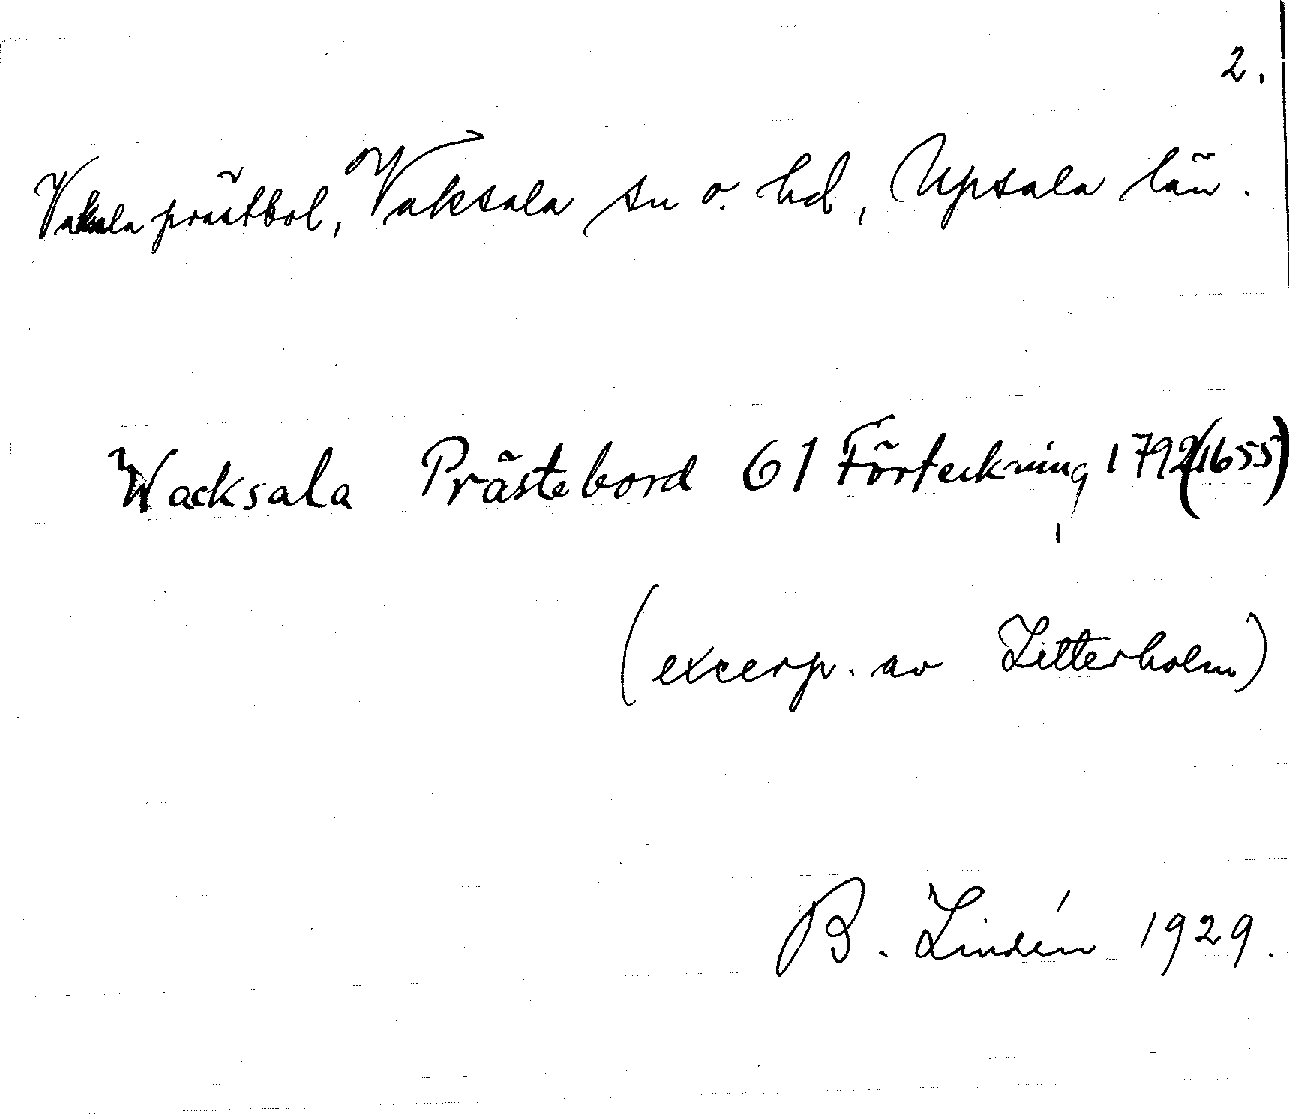 2.
Vaksala prästbol, Vaksala sn o. hd, Upsala län.
Wacksala Prästebord 61 Förteckning 1792(1655)
(excerp. av Zetterholm)
B. Lindén 1929.